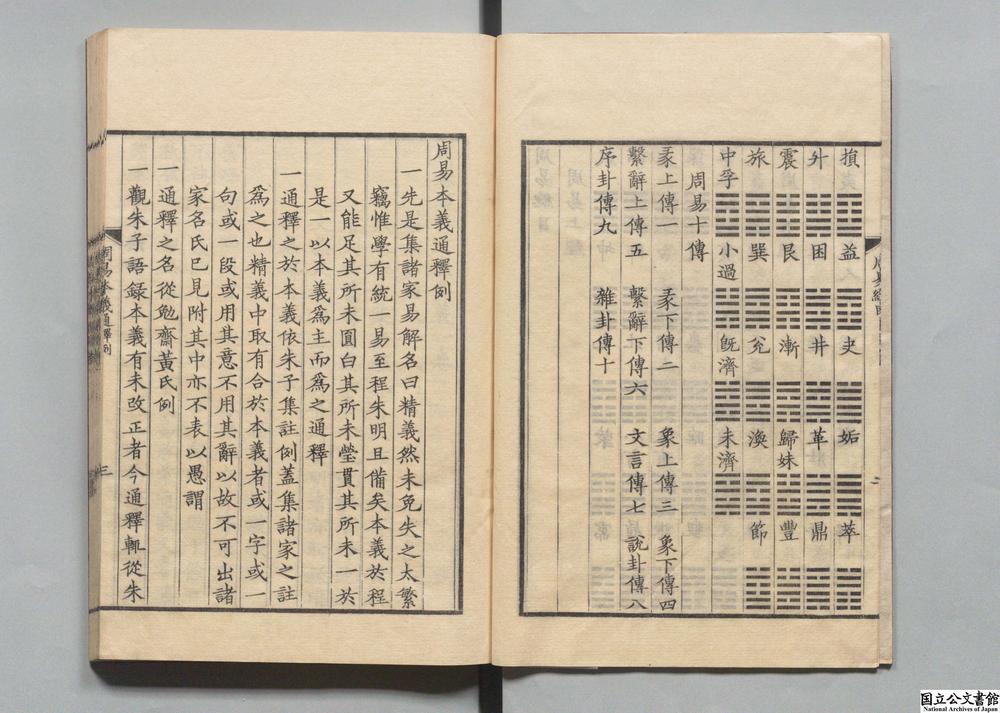 損 益 夬 姤 萃
升 困 井 革 鼎
震 艮 漸 歸妹 豐
旅 巽 兌 渙 節
中孚 小過 既濟 未濟
周易十傳
彖上傳一 彖下傳二 象上傳三 象下傳四
繫辭上傳五 繫辭下傳六 文言傳七 說卦傳八
序卦傳九 雜卦傳十
二
周易本義通釋例
一先是集諸家易解名曰精義然未免失之太繁
竊惟學有統一易至程朱明且備矣本義於程
又能足其所未圓白其所未瑩貫其所未一於
是一以本義爲主而爲之通釋
一通釋之於本義依朱子集註例蓋集諸家之註
爲之也精義中取有合於本義者或一字或一
句或一段或用其意不用其辭以故不可出諸
家名氏已見附其中亦不表以愚謂
一通釋之名從勉齋黃氏例
一觀朱子語錄本義有未改正者今通釋輒從朱
周易本義通釋例
三
国立公文書館
National Archives of Japan